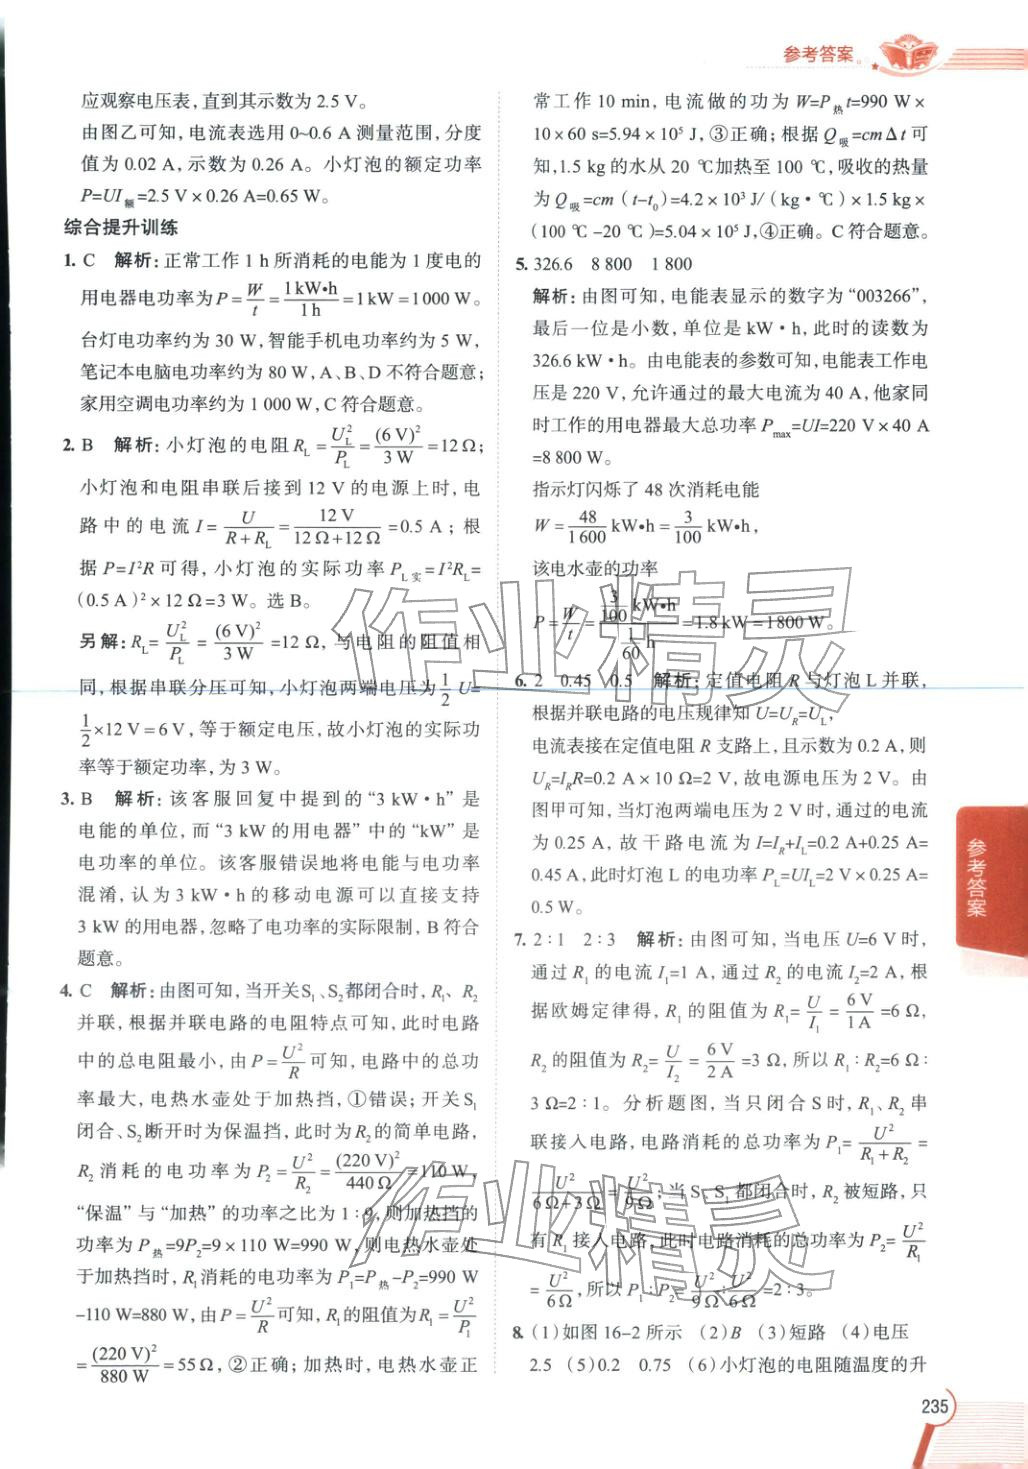 参考答案
应观察电压表，直到其示数为 2.5 V。
由图乙可知，电流表选用 0~0.6 A 测量范围，分度
值为 0.02 A，示数为 0.26 A。小灯泡的额定功率
P=UI额=2.5 V×0.26 A=0.65 W。
综合提升训练
1. C 解析：正常工作 1 h 所消耗的电能为 1 度电的
用电器电功率为 P=W/t=1 kW•h/1 h=1 kW=1 000 W。
台灯电功率约为 30 W，智能手机电功率约为 5 W，
笔记本电脑电功率约为 80 W，A、B、D 不符合题意；
家用空调电功率约为 1 000 W，C 符合题意。
2. B 解析：小灯泡的电阻 R_L=U_L²/P_L=(6 V)²/3 W=12 Ω；
小灯泡和电阻串联后接到 12 V 的电源上时，电
路中的电流 I=U/(R+R_L)=12 V/(12 Ω+12 Ω)=0.5 A；根
据 P=I²R 可得，小灯泡的实际功率 P_L实=I²R_L=
(0.5 A)²×12 Ω=3 W。选 B。
另解：R_L=U_L²/P_L=(6 V)²/3 W=12 Ω，与电阻的阻值相
同，根据串联分压可知，小灯泡两端电压为 1/2 U=
1/2×12 V=6 V，等于额定电压，故小灯泡的实际功
率等于额定功率，为 3 W。
3. B 解析：该客服回复中提到的“3 kW·h”是
电能的单位，而“3 kW 的用电器”中的“kW”是
电功率的单位。该客服错误地将电能与电功率
混淆，认为 3 kW·h 的移动电源可以直接支持
3 kW 的用电器，忽略了电功率的实际限制，B 符合
题意。
4. C 解析：由图可知，当开关S₁、S₂都闭合时，R₁、R₂
并联，根据并联电路的电阻特点可知，此时电路
中的总电阻最小，由 P=U²/R 可知，电路中的总功
率最大，电热水壶处于加热挡，①错误；开关S₁
闭合、S₂断开时为保温挡，此时为 R₂的简单电路，
R₂消耗的电功率为 P₂=U²/R₂=(220 V)²/440 Ω=110 W，
“保温”与“加热”的功率之比为 1∶9，则加热挡的
功率为 P热=9P₂=9×110 W=990 W，则电热水壶处
于加热挡时，R₁消耗的电功率为 P₁=P热-P₂=990 W
-110 W=880 W，由 P=U²/R 可知，R₁的阻值为 R₁=U²/P₁
=(220 V)²/880 W=55 Ω，②正确；加热时，电热水壶正
常工作 10 min，电流做的功为 W=P热t=990 W×
10×60 s=5.94×10⁵ J，③正确；根据 Q吸=cmΔt 可
知，1.5 kg 的水从 20 ℃加热至 100 ℃，吸收的热量
为 Q吸=cm（t-t₀）=4.2×10³ J/（kg·℃）×1.5 kg×
(100 ℃-20 ℃)=5.04×10⁵ J，④正确。C 符合题意。
5. 326.6 8 800 1 800
解析：由图可知，电能表显示的数字为“003266”，
最后一位是小数，单位是 kW·h，此时的读数为
326.6 kW·h。由电能表的参数可知，电能表工作电
压是 220 V，允许通过的最大电流为 40 A，他家同
时工作的用电器最大总功率 P_max=UI=220 V×40 A
=8 800 W。
指示灯闪烁了 48 次消耗电能
W=48/1 600 kW•h=3/100 kW•h，
该电水壶的功率
P=W/t=(3/100 kW•h)/(1/60 h)=1.8 kW=1 800 W。
6. 2 0.45 0.5 解析：定值电阻 R 与灯泡 L 并联，
根据并联电路的电压规律知 U=U_R=U_L，
电流表接在定值电阻 R 支路上，且示数为 0.2 A，则
U_R=I_R R=0.2 A×10 Ω=2 V，故电源电压为 2 V。由
图甲可知，当灯泡两端电压为 2 V时，通过的电流
为 0.25 A，故干路电流为 I=I_R+I_L=0.2 A+0.25 A=
0.45 A，此时灯泡 L 的电功率 P_L=UI_L=2 V×0.25 A=
0.5 W。
7. 2∶1 2∶3 解析：由图可知，当电压 U=6 V 时，
通过 R₁的电流 I₁=1 A，通过 R₂的电流 I₂=2 A，根
据欧姆定律得，R₁的阻值为 R₁=U/I₁=6 V/1 A=6 Ω，
R₂的阻值为 R₂=U/I₂=6 V/2 A=3 Ω，所以 R₁∶R₂=6 Ω∶
3 Ω=2∶1。分析题图，当只闭合 S时，R₁、R₂串
联接入电路，电路消耗的总功率为 P₁=U²/(R₁+R₂)=
U²/(6 Ω+3 Ω)=U²/9 Ω；当 S、S₁都闭合时，R₂被短路，只
有 R₁接入电路，此时电路消耗的总功率为 P₂=U²/R₁
=U²/6 Ω，所以 P₁∶P₂=U²/9 Ω∶U²/6 Ω=2∶3。
8. (1)如图 16-2 所示 (2)B (3)短路 (4)电压
2.5 (5)0.2 0.75 (6)小灯泡的电阻随温度的升
参考答案
235
作业精灵
作业精灵